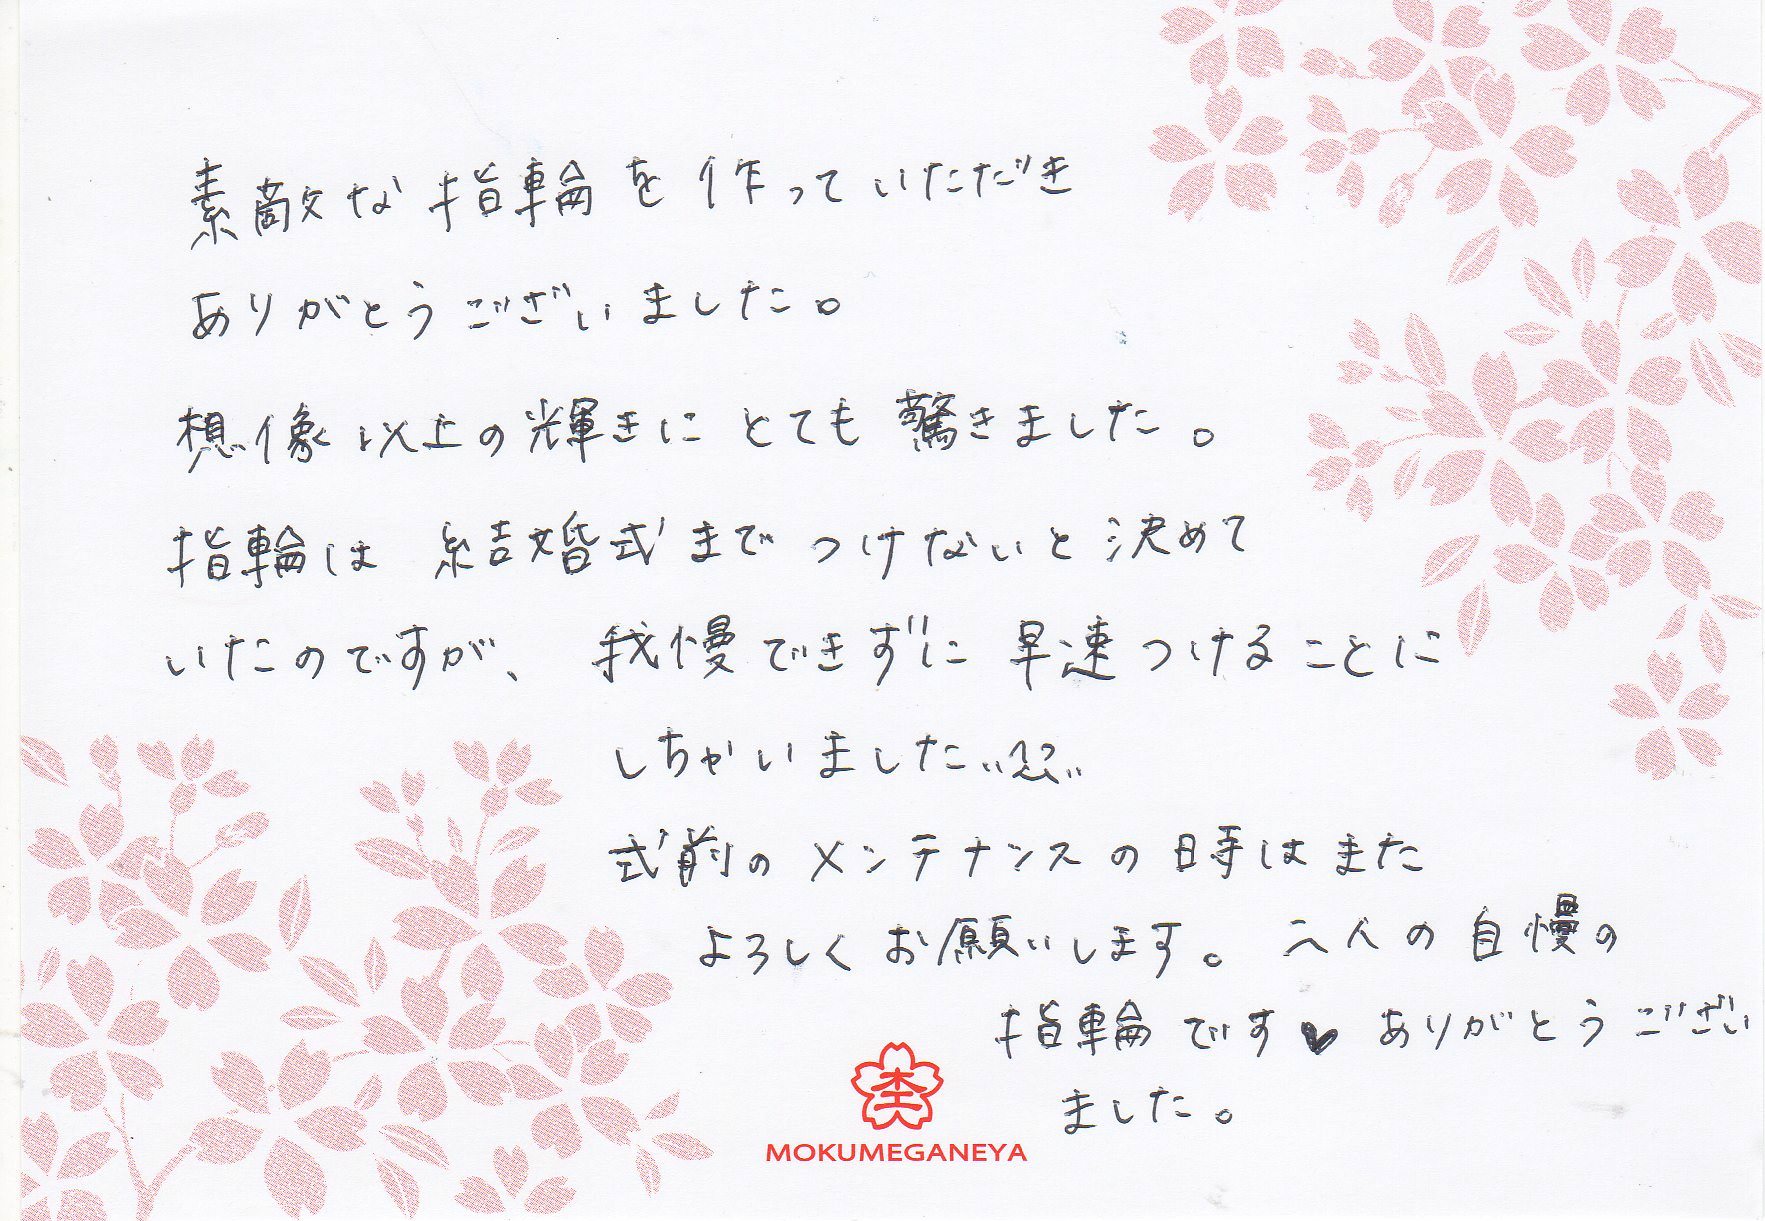 素敵な指輪を作っていただき
ありがとうございました。
想像以上の輝きにとても驚きました。
指輪は 結婚式までつけないと決めて
いたのですが、 我慢できずに早速つけることに
しちゃいました
式前のメンテナンスの時はまた
よろしくお願いします。二人の自慢の
指輪です♥ ありがとうござい
ました。
MOKUMEGANEYA